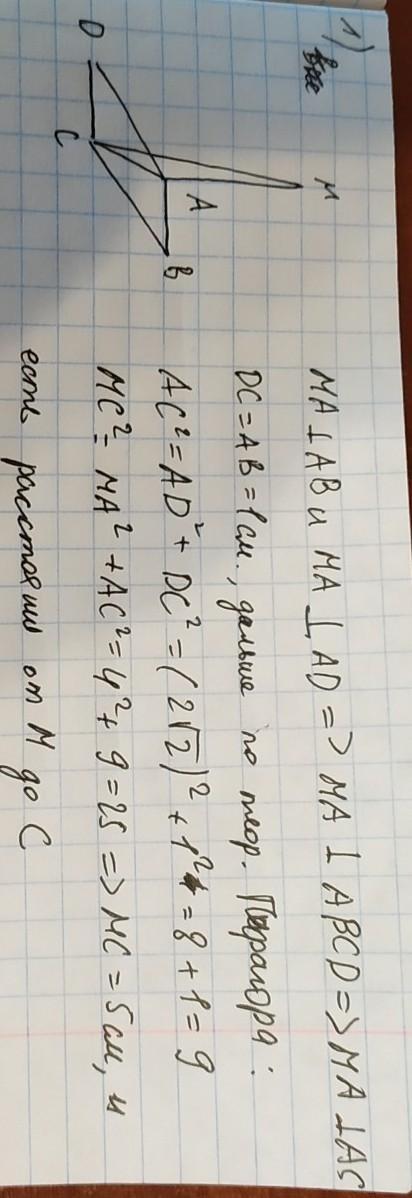 1)
M
A
B
C
D
MA ⊥ AB и MA ⊥ AD => MA ⊥ ABCD => MA ⊥ AC
DC = AB = 1 см., дальше по теор. Пифагора:
AC² = AD² + DC² = (2√2)² + 1² = 8 + 1 = 9
MC² = MA² + AC² = 4² + 9 = 25 => MC = 5 см, и
есть расстояни от M до C